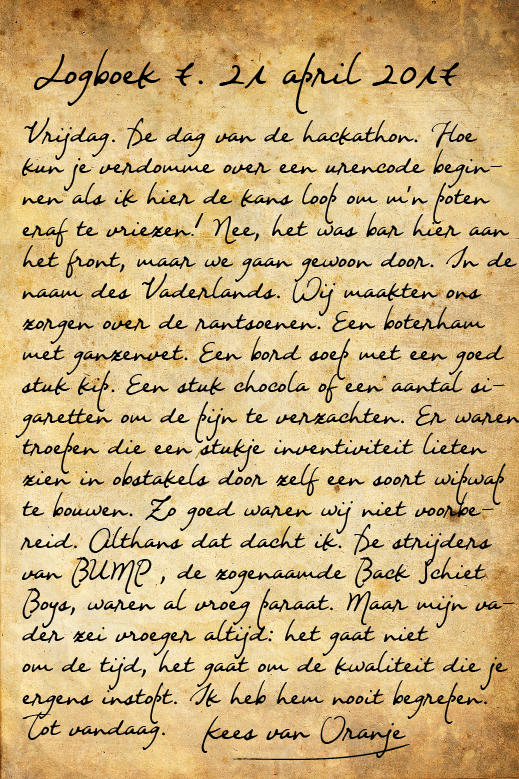 Logboek 7. 21 april 2017
Vrijdag. De dag van de hackathon. Hoe
kun je verdomme over een urencode begin-
nen als ik hier de kans loop om m'n poten
eraf te vriezen! Nee, het was bar hier aan
het front, maar we gaan gewoon door. In de
naam des Vaderlands. Wij maakten ons
zorgen over de rantsoenen. Een boterham
met ganzenvet. Een bord soep met een goed
stuk kip. Een stuk chocola of een aantal si-
garetten om de pijn te verzachten. Er waren
troepen die een stukje inventiviteit lieten
zien in obstakels door zelf een soort wipwap
te bouwen. Zo goed waren wij niet voorbe-
reid. Althans dat dacht ik. De strijders
van BUMP, de zogenaamde Back Schiet
Boys, waren al vroeg paraat. Maar mijn va-
der zei vroeger altijd: het gaat niet
om de tijd, het gaat om de kwaliteit die je
ergens instopt. Ik heb hem nooit begrepen.
Tot vandaag. Kees van Oranje